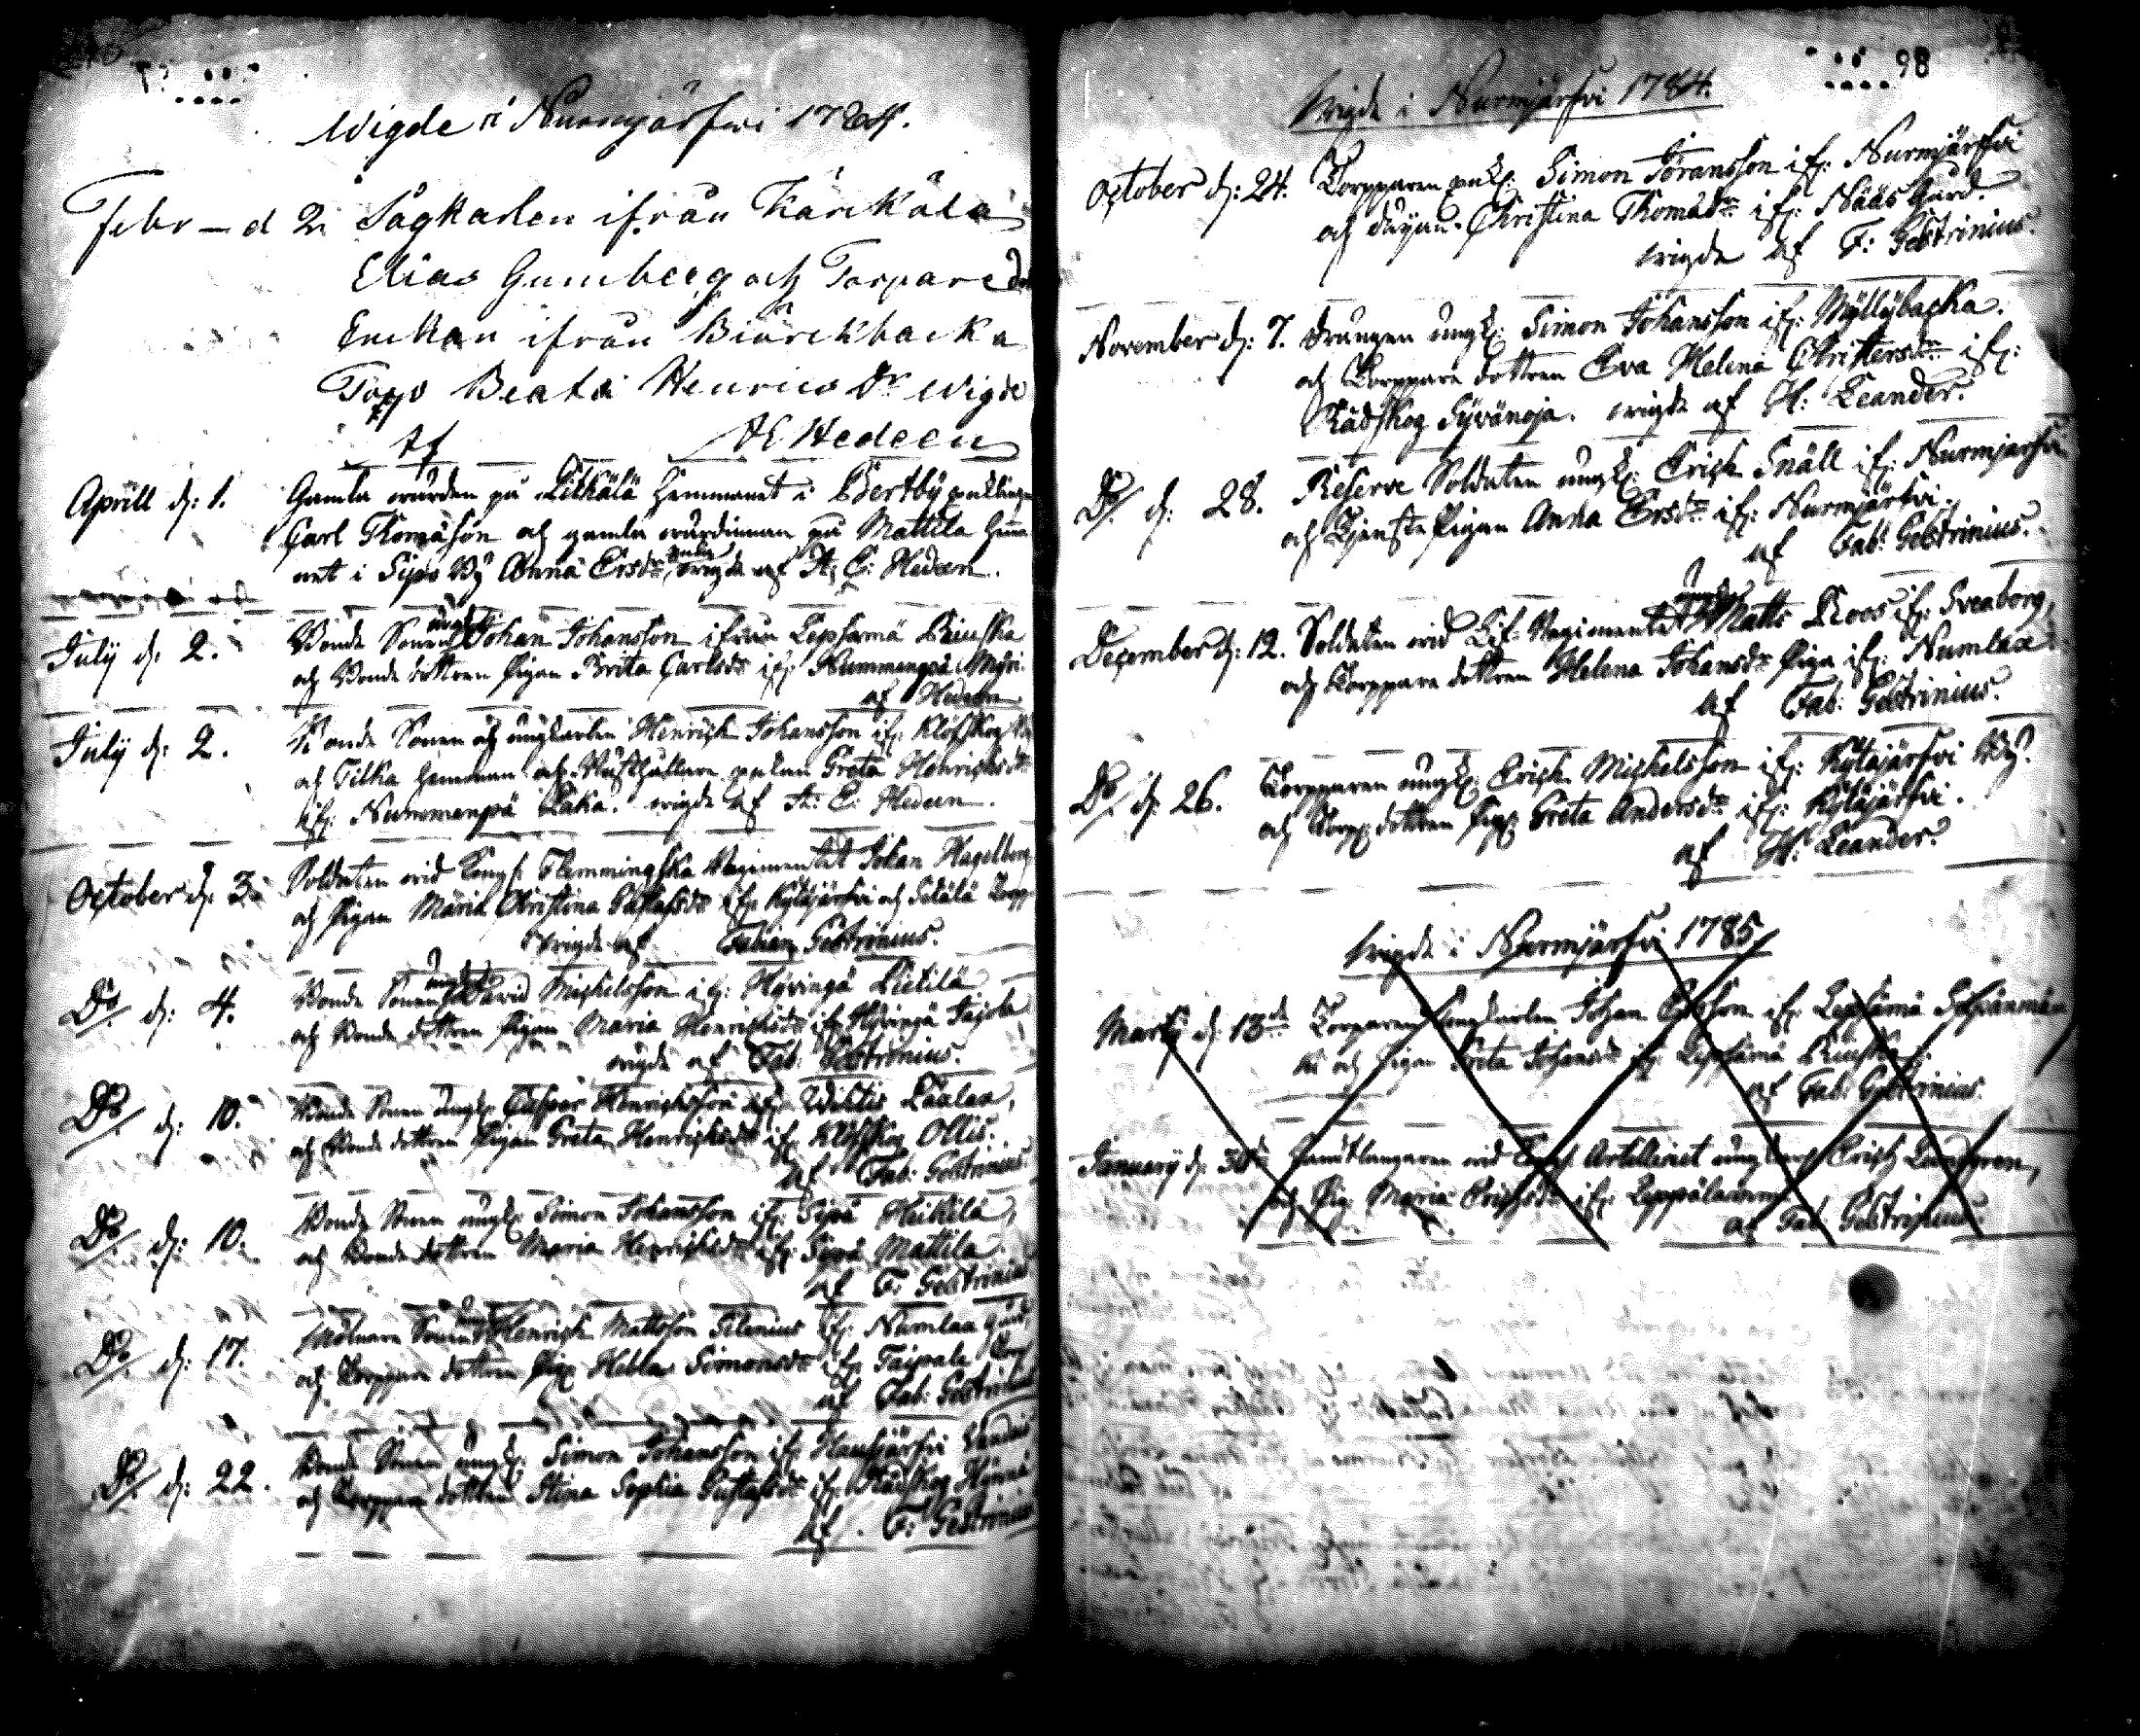 Wigde i Nurmjärfwi 1784.
Febr – d 2 Sågkarlen ifrån Kärckälä
Elias Gumberg och Torpare
Enckan ifrån Biörckbacka
Torp Beata Henrics Dr Wigde
Af AE Hedeen
Aprill d: 1. Gamla wärden på hemmanet i Bertby
Carl Thomason och gamla wärdinnan på Mattila
net i Sipo By Anna Ersdr, wigde af A: E: Hedeen.
July d: 2. Bonde Sonen Johan Johansson ifrån Lepsamä
och Bonde dottren Pigan Brita Carlsdr if: Nummenpä
af Hedeen
July d: 2. Bonde Sonen och ungkarlen Henrich Johansson if: Klöfskog
och Tilka Greta Henrichsdr
if: Nummenpä wigde af A: E: Hedeen.
October d: 3. Soldaten wid Kongl: Flemmingska Regimentet Johan Hagelberg
och Pigan Maria Christina Gustafsdr if: Kytäjärfwi och
Wigde af Fabian Gestrinius.
Do d: 4. Bonde Sonen David Michelsson if: Hyvingä Pietilä
och Bonde dottren Pigan Maria Henrichsdr if: Hyvingä
wigde af Fab: Gestrinius.
Do d: 10. Bonde Sonen ungk: Henrichsson if: Wihtis
och Bonde dottren Pigan Greta Henrichsdr if: Klöfskog Ollis.
af Fab: Gestrinius.
Do d: 10. Bonde Sonen ungk: Simon Johansson if: Heikilä,
och Bonde dottren Maria Henrichsdr if: Mattila.
af F: Gestrinius
Do d: 17. Sonen Henrich Mattsson if: Numlax gård,
och Torppare dottren Pig: Hebla Simonsdr if: Taipale Torp
af Fab: Gestrinius
Do d: 22. Bonde Sonen ungk: Simon Johansson if: Hausjärfwi
och Torppare dottren Stina Sophia Gustafsdr if: Rådskog
af F: Gestrinius
98
Wigde i Nurmjärfwi 1784.
October d: 24. Torpparen Simon Göransson if: Nurmjärfwi
och Christina Thomasdr if: Nääs Gård.
wigde af F: Gestrinius.
November d: 7. Drängen ungk: Simon Johansson if: Myllybacka.
och Torppare dottren Eva Helena Christersdr if:
Rådskog Syvänoja. wigde af H: Leander.
Do d: 28. Reserve Soldaten ungk: Erich Snäll if: Nurmjärfwi
och Tjenste Pigan Anna Ersdr if: Nurmjärfwi.
af Fab: Gestrinius.
December d: 12. Soldaten wid Lif-Regimentet Matts Roos if: Sveaborg,
och Torppare dottren Helena Johansdr Piga if: Numlax
af Fab: Gestrinius.
Do d: 26. Torpparen ungk: Erich Michelsson if: Kytäjärfwi By.
och Torp: dottren Pig: Greta Andersdr if: Kytäjärfwi.
af H: Leander.
Wigde i Nurmjärfwi 1785
Marty d: 13de Torparen Ungkarlen Johan if: Lepsämä
och Pigan Greta Johansdr if: Lepsämä
af Fab: Gestrinius.
January d: 30de Handtlangaren wid Kongl: Artilleriet ungkarl: Erich
och Pig: Maria Erichsdr if:
af Fab: Gestrinius.